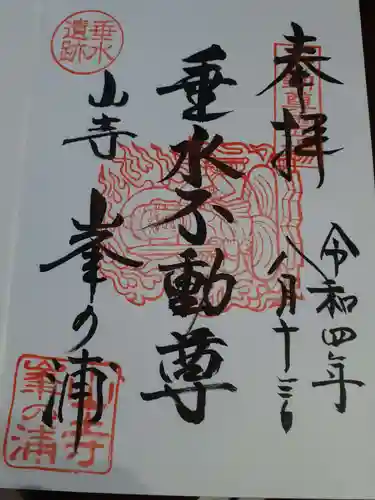 奉拝
令和四年
八月十三日
垂水不動尊
山寺
峯の浦
垂水
遺跡
峯の浦